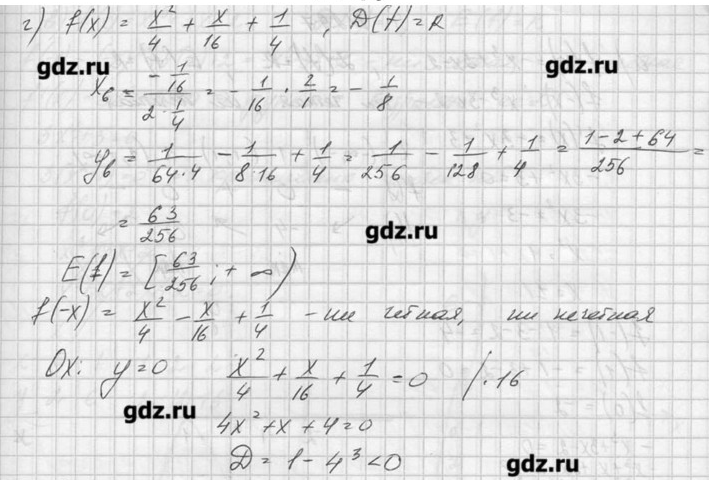 г) f(x) = x²/4 + x/16 + 1/4 , D(f)=R
gdz.ru
gdz.ru
x_в = (-1/16)/(2·1/4) = - 1/16 · 2/1 = - 1/8
y_в = 1/(64·4) - 1/(8·16) + 1/4 = 1/256 - 1/128 + 1/4 = (1-2+64)/256 =
= 63/256
gdz.ru
E(f) = [63/256 ; + ∞)
f(-x) = x²/4 - x/16 + 1/4 - ни четная, ни нечетная
Ox: y=0 x²/4 + x/16 + 1/4 = 0 /·16
gdz.ru
4x²+x+4=0
D = 1-4³<0
gdz.ru